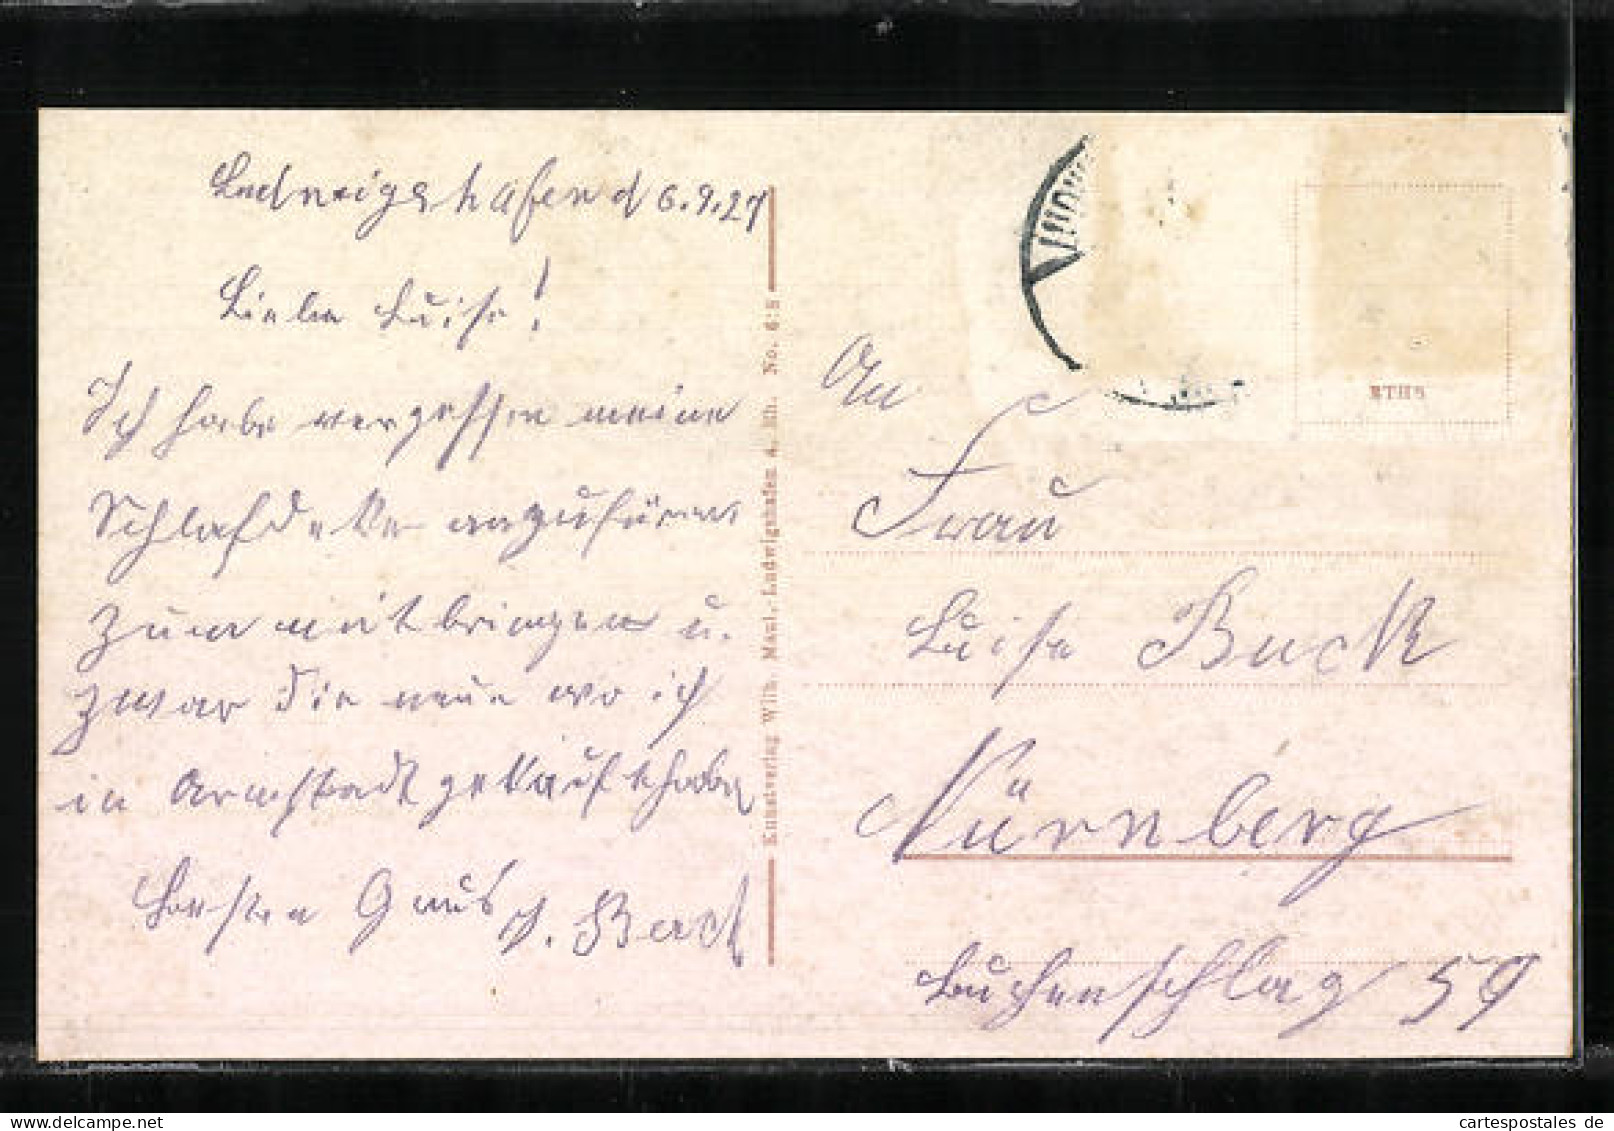 Ludwigshafen d 6.9.27
Liebe Luise!
Ich habe vergessen meine
Schlafdecke anzufüren
zum mitbringen u.
zwar die neue wo ich
in Armstadt gekauft habe
Besten Gruß J. Buck
Kunstverlag Wilh. Menl.-Ludwigshafen a. Rh. No.
An
Frau
Luise Buck
Nürnberg
Buchenschlag 59
cartespostales de